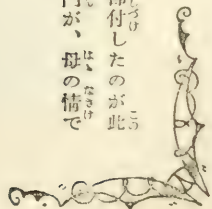 付したのが此
が、母の情で